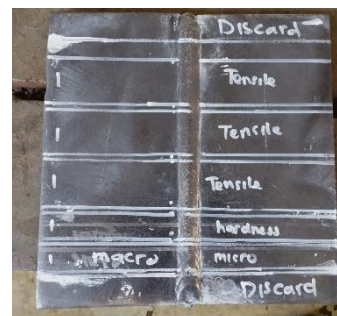 Discard
1 Tensile
1 Tensile
1 Tensile
1 hardness
1 macro micro
Discard